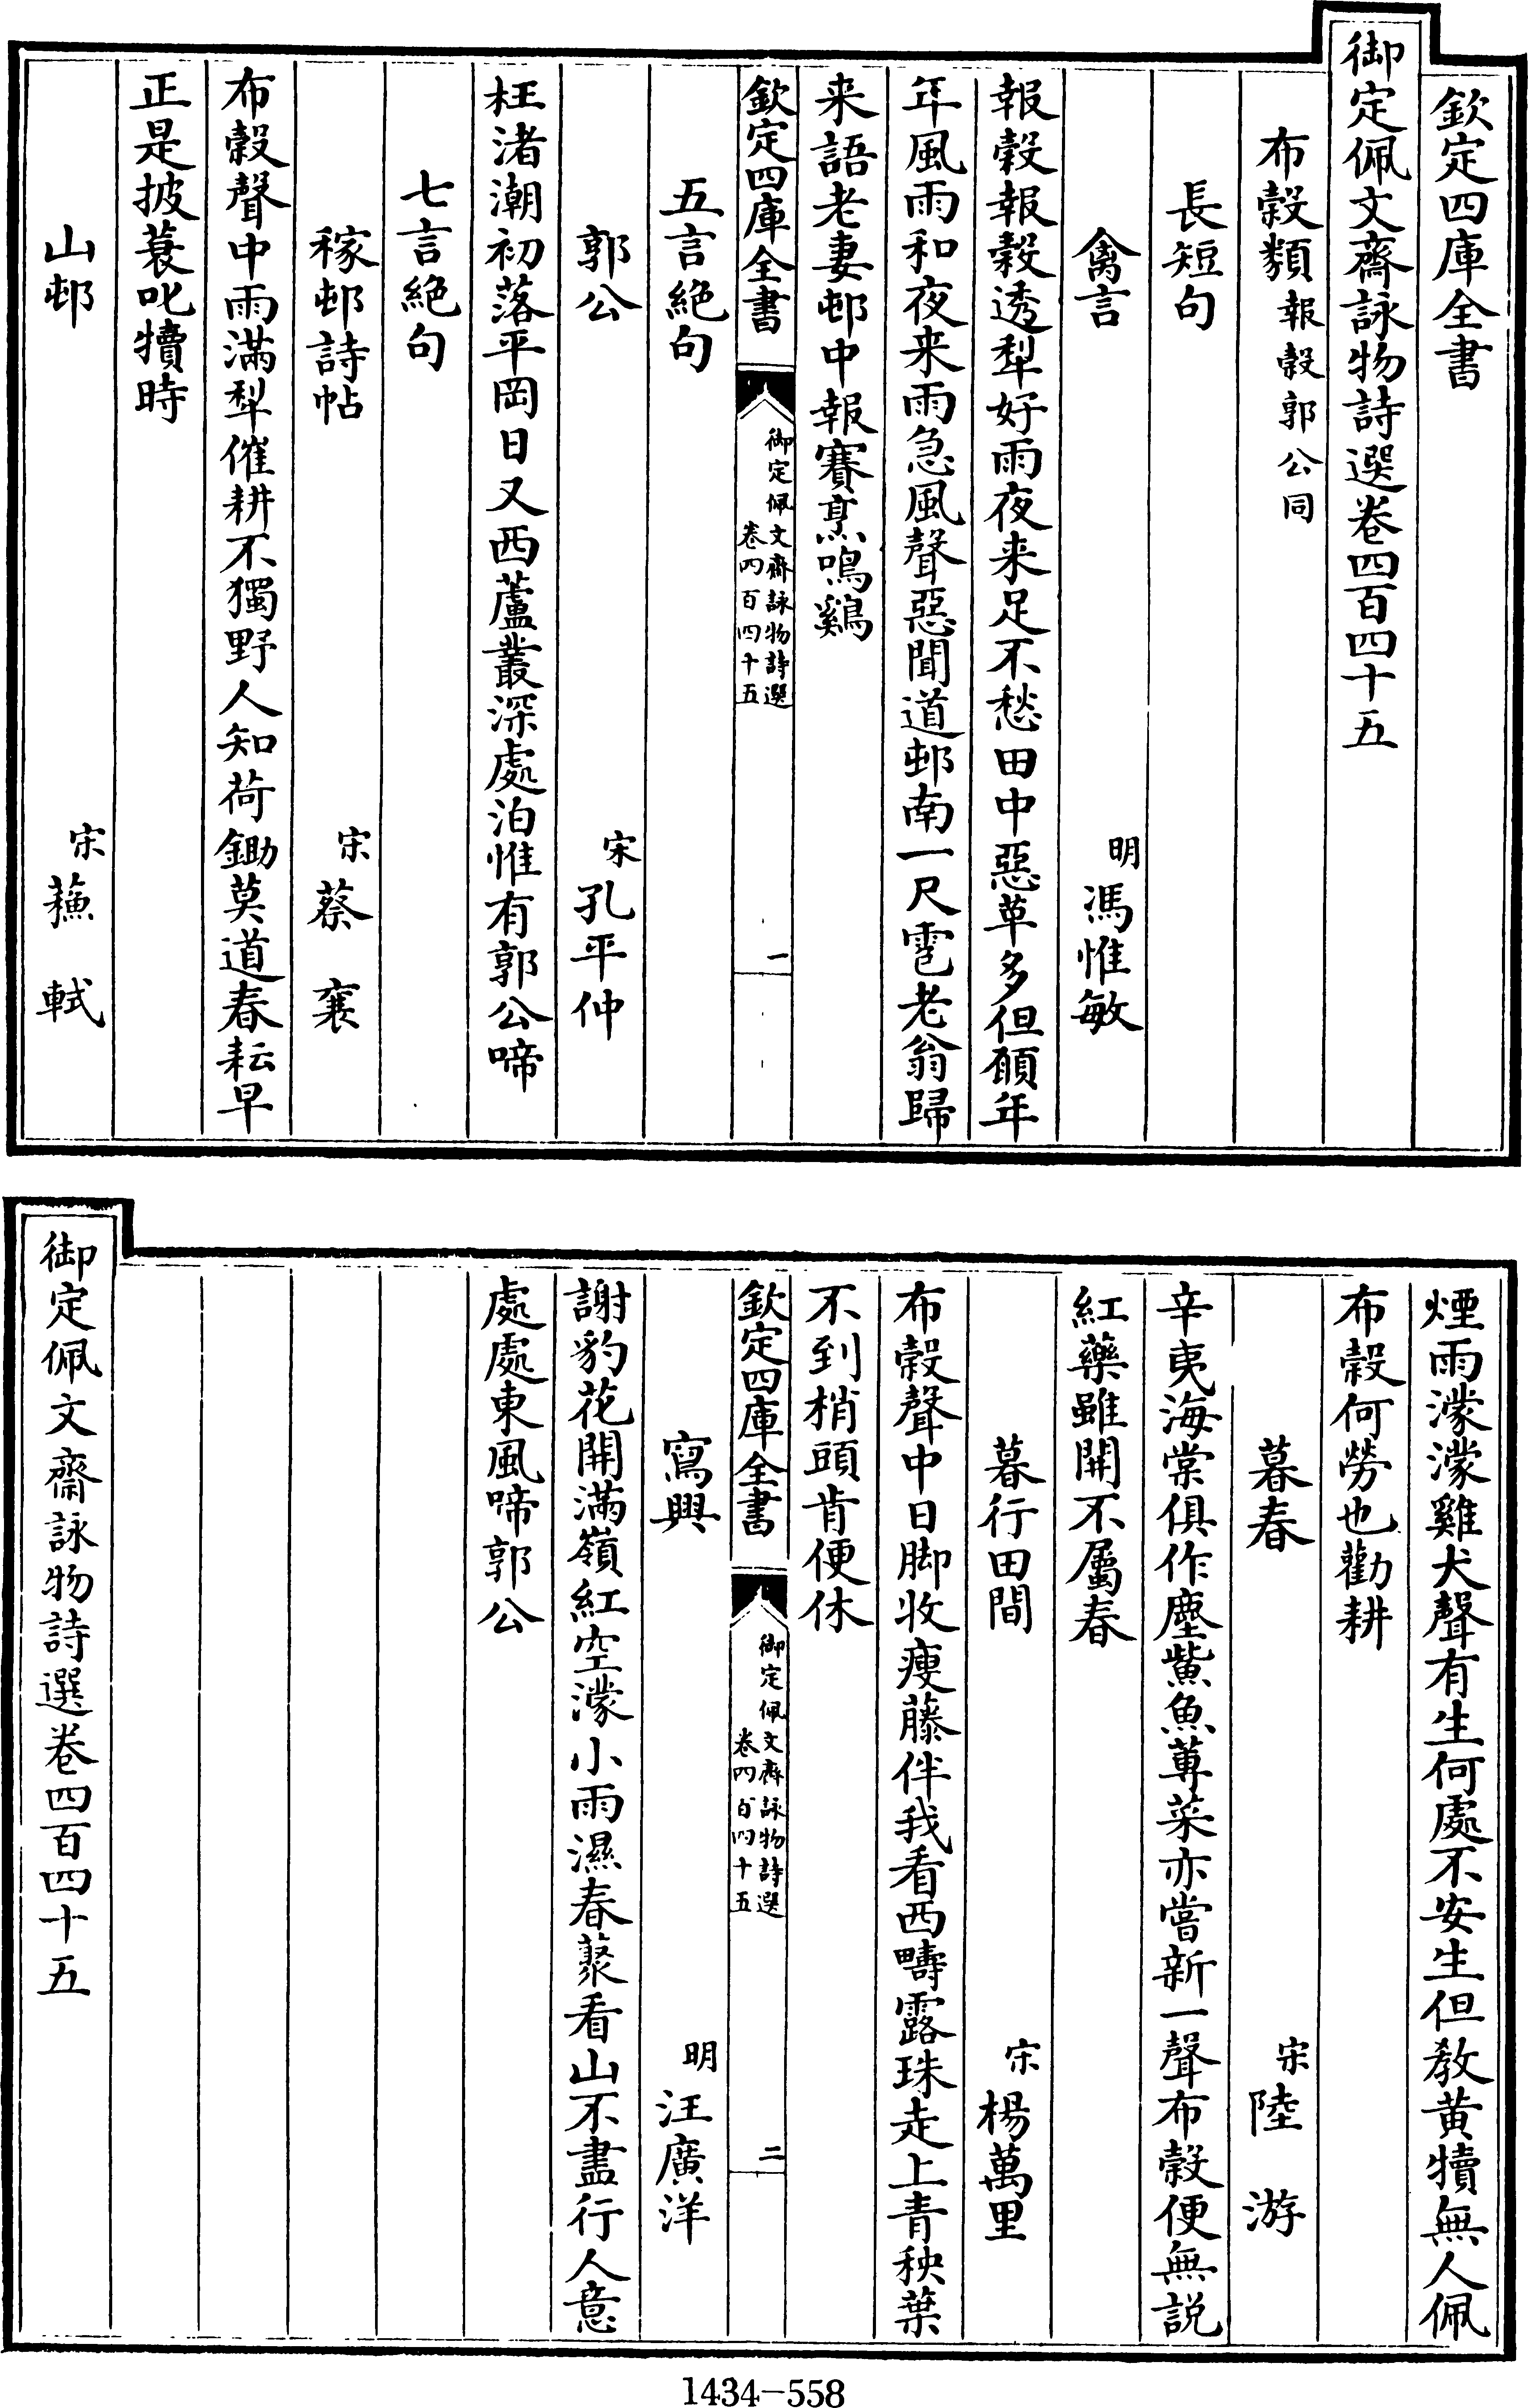 欽定四庫全書
御定佩文齋詠物詩選卷四百四十五
布穀類報穀郭公同
長短句
禽言 明馮惟敏
報穀報穀透犁好雨夜来足不愁田中惡草多但願年
年風雨和夜来雨急風聲惡聞道邨南一尺雹老翁歸
来語老妻邨中報賽烹鳴鷄
欽定四庫全書 御定佩文齋詠物詩選 卷四百四十五 一
五言絕句
郭公 宋孔平仲
枉渚潮初落平岡日又西蘆叢深處泊惟有郭公啼
七言絕句
稼邨詩帖 宋蔡襄
布穀聲中雨滿犁催耕不獨野人知荷鋤莫道春耘早
正是披蓑叱犢時
山邨 宋蘇軾
煙雨濛濛雞犬聲有生何處不安生但教黄犢無人佩
布穀何勞也勸耕
暮春 宋陸游
辛夷海棠俱作塵鮆魚蓴菜亦嘗新一聲布穀便無説
紅藥雖開不屬春
暮行田間 宋楊萬里
布穀聲中日脚收瘦藤伴我看西疇露珠走上青秧葉
不到梢頭肯便休
欽定四庫全書 御定佩文齋詠物詩選 卷四百四十五 二
寫興 明汪廣洋
謝豹花開滿嶺紅空濛小雨濕春叢看山不盡行人意
處處東風啼郭公
御定佩文齋詠物詩選卷四百四十五
1434-558